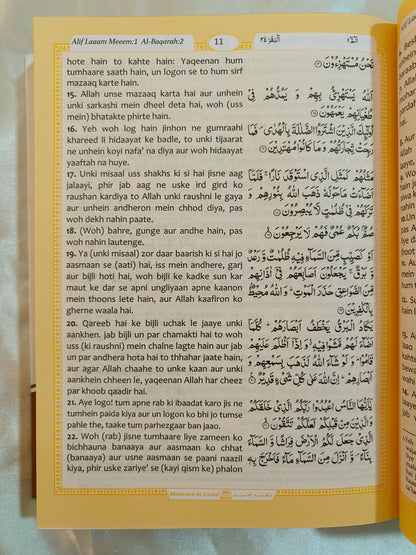 Alif Laaam Meeem:1 Al-Baqarah:2
11
البقرة ٢
الم ١
hote hain to kahte hain: Yaqeenan hum
tumhaare saath hain, un logon se to hum sirf
mazaaq karte hain.
15. Allah unse mazaaq karta hai aur unhein
unki sarkashi mein dheel deta hai, woh (uss
mein) bhatakte phirte hain.
16. Yeh woh log hain jinhon ne gumraahi
khareed li hidaayat ke badle, to unki tijaarat
ne unhein koyi nafa' na diya aur woh hidaayat
yaaftah na huye.
17. Unki misaal uss shakhs ki si hai jisne aag
jalaayi, phir jab aag ne uske ird gird ko
raushan kardiya to Allah unki raushni le gaya
aur unhein andheron mein chhod diya, pas
woh dekh nahin paate.
18. (Woh) bahre, gunge aur andhe hain, pas
woh nahin lautenge.
19. Ya (unki misaal) zor daar baarish ki si hai jo
aasmaan se (aati) hai, iss mein andhere, garj
aur bijli hoti hai, woh bijli ke kadke sun kar
maut ke dar se apni ungliyaan apne kaanon
mein thoons lete hain, aur Allah kaafiron ko
gherne waala hai.
20. Qareeb hai ke bijli uchak le jaaye unki
aankhen. jab bijli un par chamakti hai to woh
uss (ki raushni) mein chalne lagte hain aur jab
un par andhera hota hai to thhahar jaate hain,
aur agar Allah chaahe to unke kaan aur unki
aankhein chheen le, yaqeenan Allah har cheez
par khoob qaadir hai.
21. Aye logo! tum apne rab ki ibaadat karo jis ne
tumhein paida kiya aur un logon ko bhi jo tumse
pahle the, taake tum parhezgaar ban jaao.
22. Woh (rab) jisne tumhaare liye zameen ko
bichhauna banaaya aur aasmaan ko chhat
(banaaya) aur usne aasmaan se paani naazil
kiya, phir uske zariye' se (kayi qism ke) phalon
نَحْنُ مُسْتَهْزِءُوْنَ ۝
اَللّٰهُ يَسْتَهْزِئُ بِهِمْ وَ يَمُدُّهُمْ فِيْ
طُغْيَانِهِمْ يَعْمَهُوْنَ ۝
اُولٰٓئِكَ الَّذِيْنَ اشْتَرَوُا الضَّلٰلَةَ بِالْهُدٰى ۪ فَمَا
رَبِحَتْ تِّجَارَتُهُمْ وَ مَا كَانُوْا مُهْتَدِيْنَ ۝
مَثَلُهُمْ كَمَثَلِ الَّذِي اسْتَوْقَدَ نَارًا ۚ فَلَمَّاۤ
اَضَآءَتْ مَا حَوْلَهٗ ذَهَبَ اللّٰهُ بِنُوْرِهِمْ وَ
تَرَكَهُمْ فِيْ ظُلُمٰتٍ لَّا يُبْصِرُوْنَ ۝
صُمٌّۢ بُكْمٌ عُمْيٌ فَهُمْ لَا يَرْجِعُوْنَ ۝
اَوْ كَصَيِّبٍ مِّنَ السَّمَآءِ فِيْهِ ظُلُمٰتٌ وَّ رَعْدٌ
وَّ بَرْقٌ ۚ يَجْعَلُوْنَ اَصَابِعَهُمْ فِيْۤ اٰذَانِهِمْ
مِّنَ الصَّوَاعِقِ حَذَرَ الْمَوْتِ ؕ وَ اللّٰهُ مُحِيْطٌۢ
بِالْكٰفِرِيْنَ ۝
يَكَادُ الْبَرْقُ يَخْطَفُ اَبْصَارَهُمْ ؕ كُلَّمَاۤ
اَضَآءَ لَهُمْ مَّشَوْا فِيْهِ ۙۗ وَ اِذَاۤ اَظْلَمَ عَلَيْهِمْ
قَامُوْا ؕ وَ لَوْ شَآءَ اللّٰهُ لَذَهَبَ بِسَمْعِهِمْ وَ
اَبْصَارِهِمْ ؕ اِنَّ اللّٰهَ عَلٰى كُلِّ شَيْءٍ قَدِيْرٌ ۝
يٰۤاَيُّهَا النَّاسُ اعْبُدُوْا رَبَّكُمُ الَّذِيْ خَلَقَكُمْ
وَ الَّذِيْنَ مِنْ قَبْلِكُمْ لَعَلَّكُمْ تَتَّقُوْنَ ۝
الَّذِيْ جَعَلَ لَكُمُ الْاَرْضَ فِرَاشًا وَّ السَّمَآءَ
بِنَآءً ۪ وَّ اَنْزَلَ مِنَ السَّمَآءِ مَآءً فَاَخْرَجَ بِهٖ